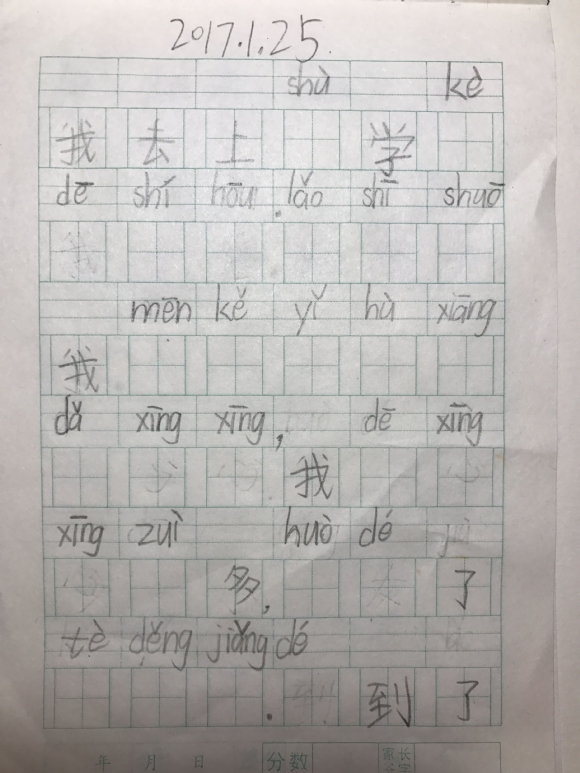 2017.1.25.
shù kè
我去上 学
dē shí hōu.lǎo shī shuō
mēn kě yǐ hù xiāng
我
dǎ xīng xīng, dē xīng
我
xīng zuì huò dé
多, 了
tè děng jiǎng dé
. 到了
年 月 日 分数 家长